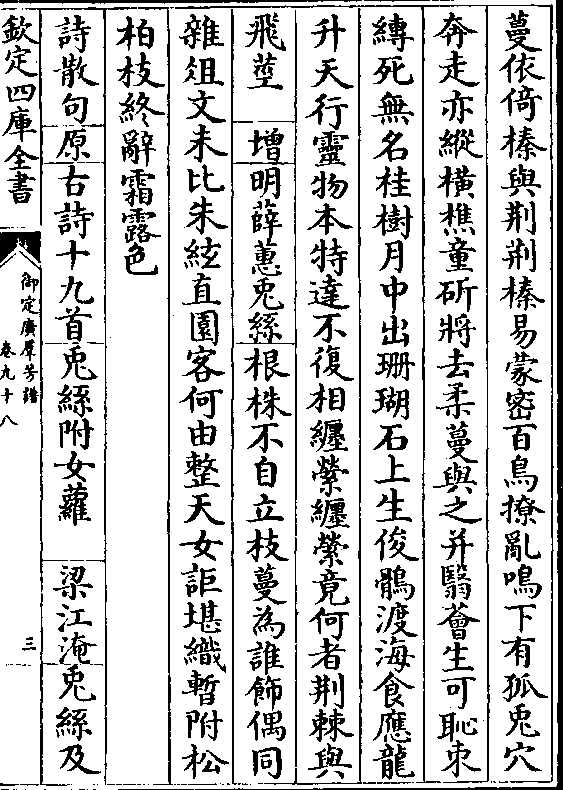 蔓依倚榛與荆荆榛易蒙密百鳥撩亂鳴下有狐兎穴
奔走亦縱橫樵童斫將去柔蔓與之并翳薈生可恥束
縳死無名桂樹月中出珊瑚石上生俊鶻渡海食應龍
升天行靈物本特達不復相纒縈纒縈竟何者荆棘與
飛莖 增明薛蕙兎絲根株不自立枝蔓為誰飾偶同
雜俎文未比朱絃直園客何由整天女詎堪織暫附松
柏枝終辭霜露色
詩散句原古詩十九首兎絲附女蘿 梁江淹兎絲及
欽定四庫全書
御定廣羣芳譜
卷九十八
三